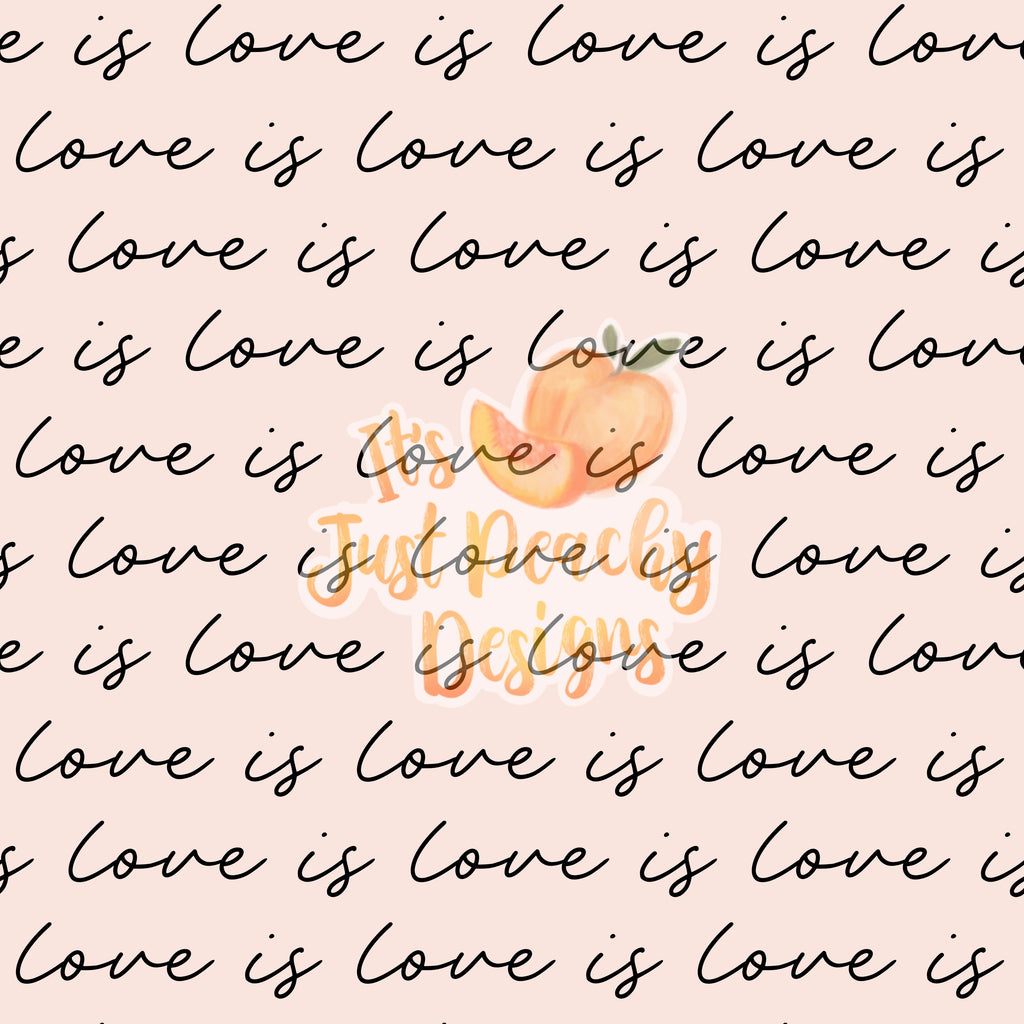 e is love is love is love
love is love is love is
s love is love is love is
e is love is love is love
love is love is love is
s love is love is love is
e is love is love is love
love is love is love is
s love is love is love is
love is love is love is
It's
Just Peachy
Designs